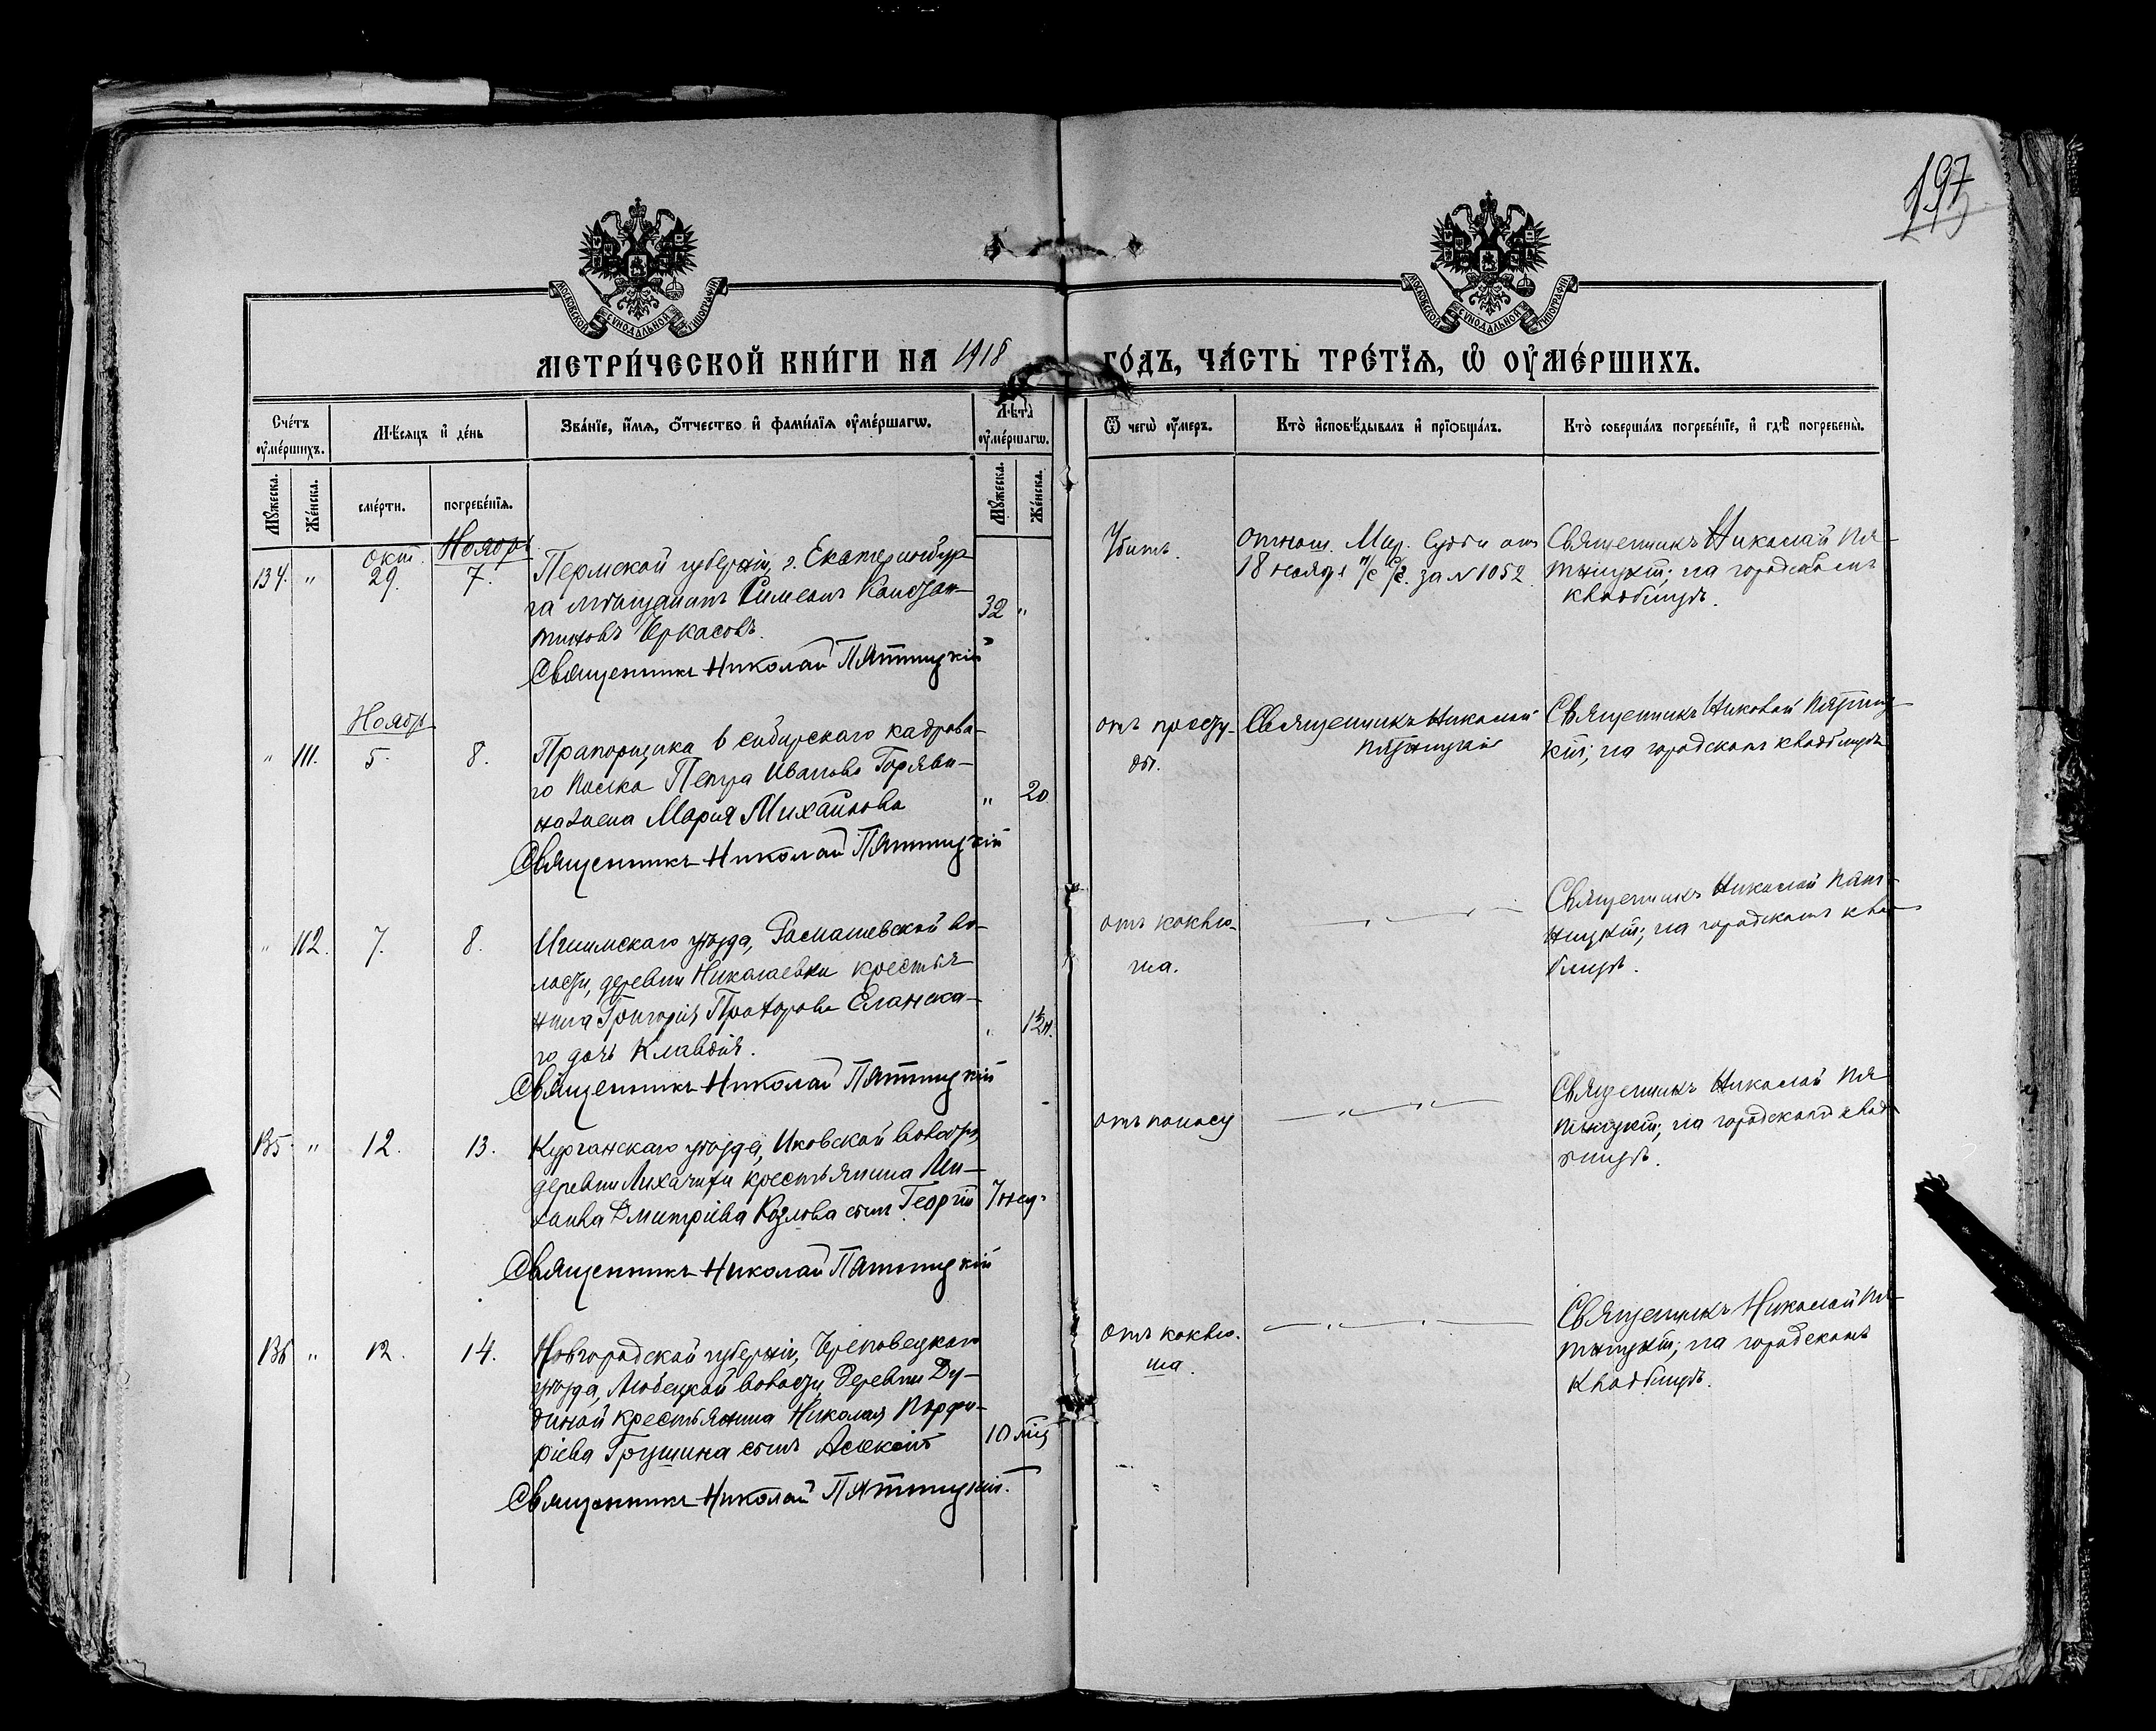 197
МОСКОВСКОЙ СѴНОДАЛЬНОЙ ТИПОГРАФІИ
МОСКОВСКОЙ СѴНОДАЛЬНОЙ ТИПОГРАФІИ
МЕТРИ́ЧЕСКОЙ КНИ́ГИ НА 1918 ГО́ДЪ, ЧА́СТЬ ТРЕ́ТЇѦ, Ѡ҆ ОУ҆МЕ́РШИХЪ.
Сче́тъ оу҆ме́ршихъ.
Мѣ́сѧцъ и҆ де́нь
Зва́нїе, и҆́мѧ, ѻ҆́тчество и҆ фами́лїѧ оу҆ме́ршагѡ.
Лѣ́та оу҆ме́ршагѡ.
Ѿ чегѡ̀ оу҆́меръ.
Кто̀ и҆сповѣ́дывалъ и҆ прїѡбща́лъ.
Кто̀ соверша́лъ погребе́нїе, и҆ гдѣ̀ погребены̀.
Мꙋ́жеска.
Же́нска.
сме́рти.
погребе́нїѧ.
Мꙋ́жеска.
Же́нска.
Окт. Ноябр.
134. " 29. 7. Пермской губерніи, г. Екатеринбур-
га мѣщанинъ Симеонъ Констан-
тиновъ Черкасовъ. 32 "
Священникъ Николай Пятницкій
Убитъ.
Отнош. Мир. Судьи отъ
18 ноября н/с с/г. за № 1052.
Священникъ Николай Пя-
тницкій; на городскомъ
кладбищѣ.
Ноябр.
" 111. 5. 8. Прапорщика 6 сибирскаго кадрова-
го полка Петра Иванова
жена Мария Михайлова " 20
Священникъ Николай Пятницкій
отъ просту-
ды.
Священникъ Николай
Пятницкій
Священникъ Николай Пятниц-
кій; на городскомъ кладбищѣ
" 112. 7. 8. Ишимскаго уѣзда, во-
лости, деревни Николаевки крестья-
нина Григорія Прохорова Еланска-
го дочь Клавдія.
Священникъ Николай Пятницкій
отъ коклю-
ша.
— " — " —
Священникъ Николай Пят-
ницкій; на городскомъ кла-
бищѣ.
135 " 12. 13. Курганскаго уѣзда, Иковской волости,
деревни Лихачи крестьянина Ми-
хаила Дмитріева Козлова сынъ Георгій 7 нед.
Священникъ Николай Пятницкій
отъ поносу
— " — " —
Священникъ Николай Пя-
тницкій; на городскомъ клад-
бищѣ.
136 " 12. 14. Новгородской губерніи, Череповецкаго
уѣзда, Любецкой волости, деревни Ду-
биной крестьянина Николая Порфи-
ріева Грушина сынъ Алексѣй 10 мѣс
Священникъ Николай Пятницкій.
Отъ коклю-
ша.
— " — " —
Священникъ Николай Пя-
тницкій; на городскомъ
кладбищѣ.